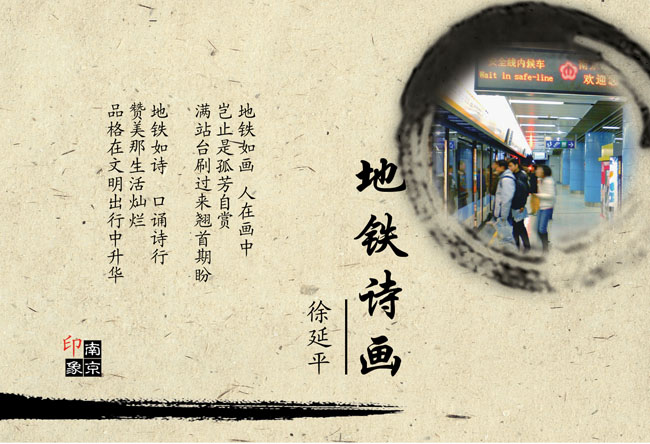 安全线内候车
Wait in safe-line
南
欢迎
地铁诗画
徐延平
地铁如画 人在画中
岂止是孤芳自赏
满站台刷过来翘首期盼
地铁如诗 口诵诗行
赞美那生活灿烂
品格在文明出行中升华
南京
印象